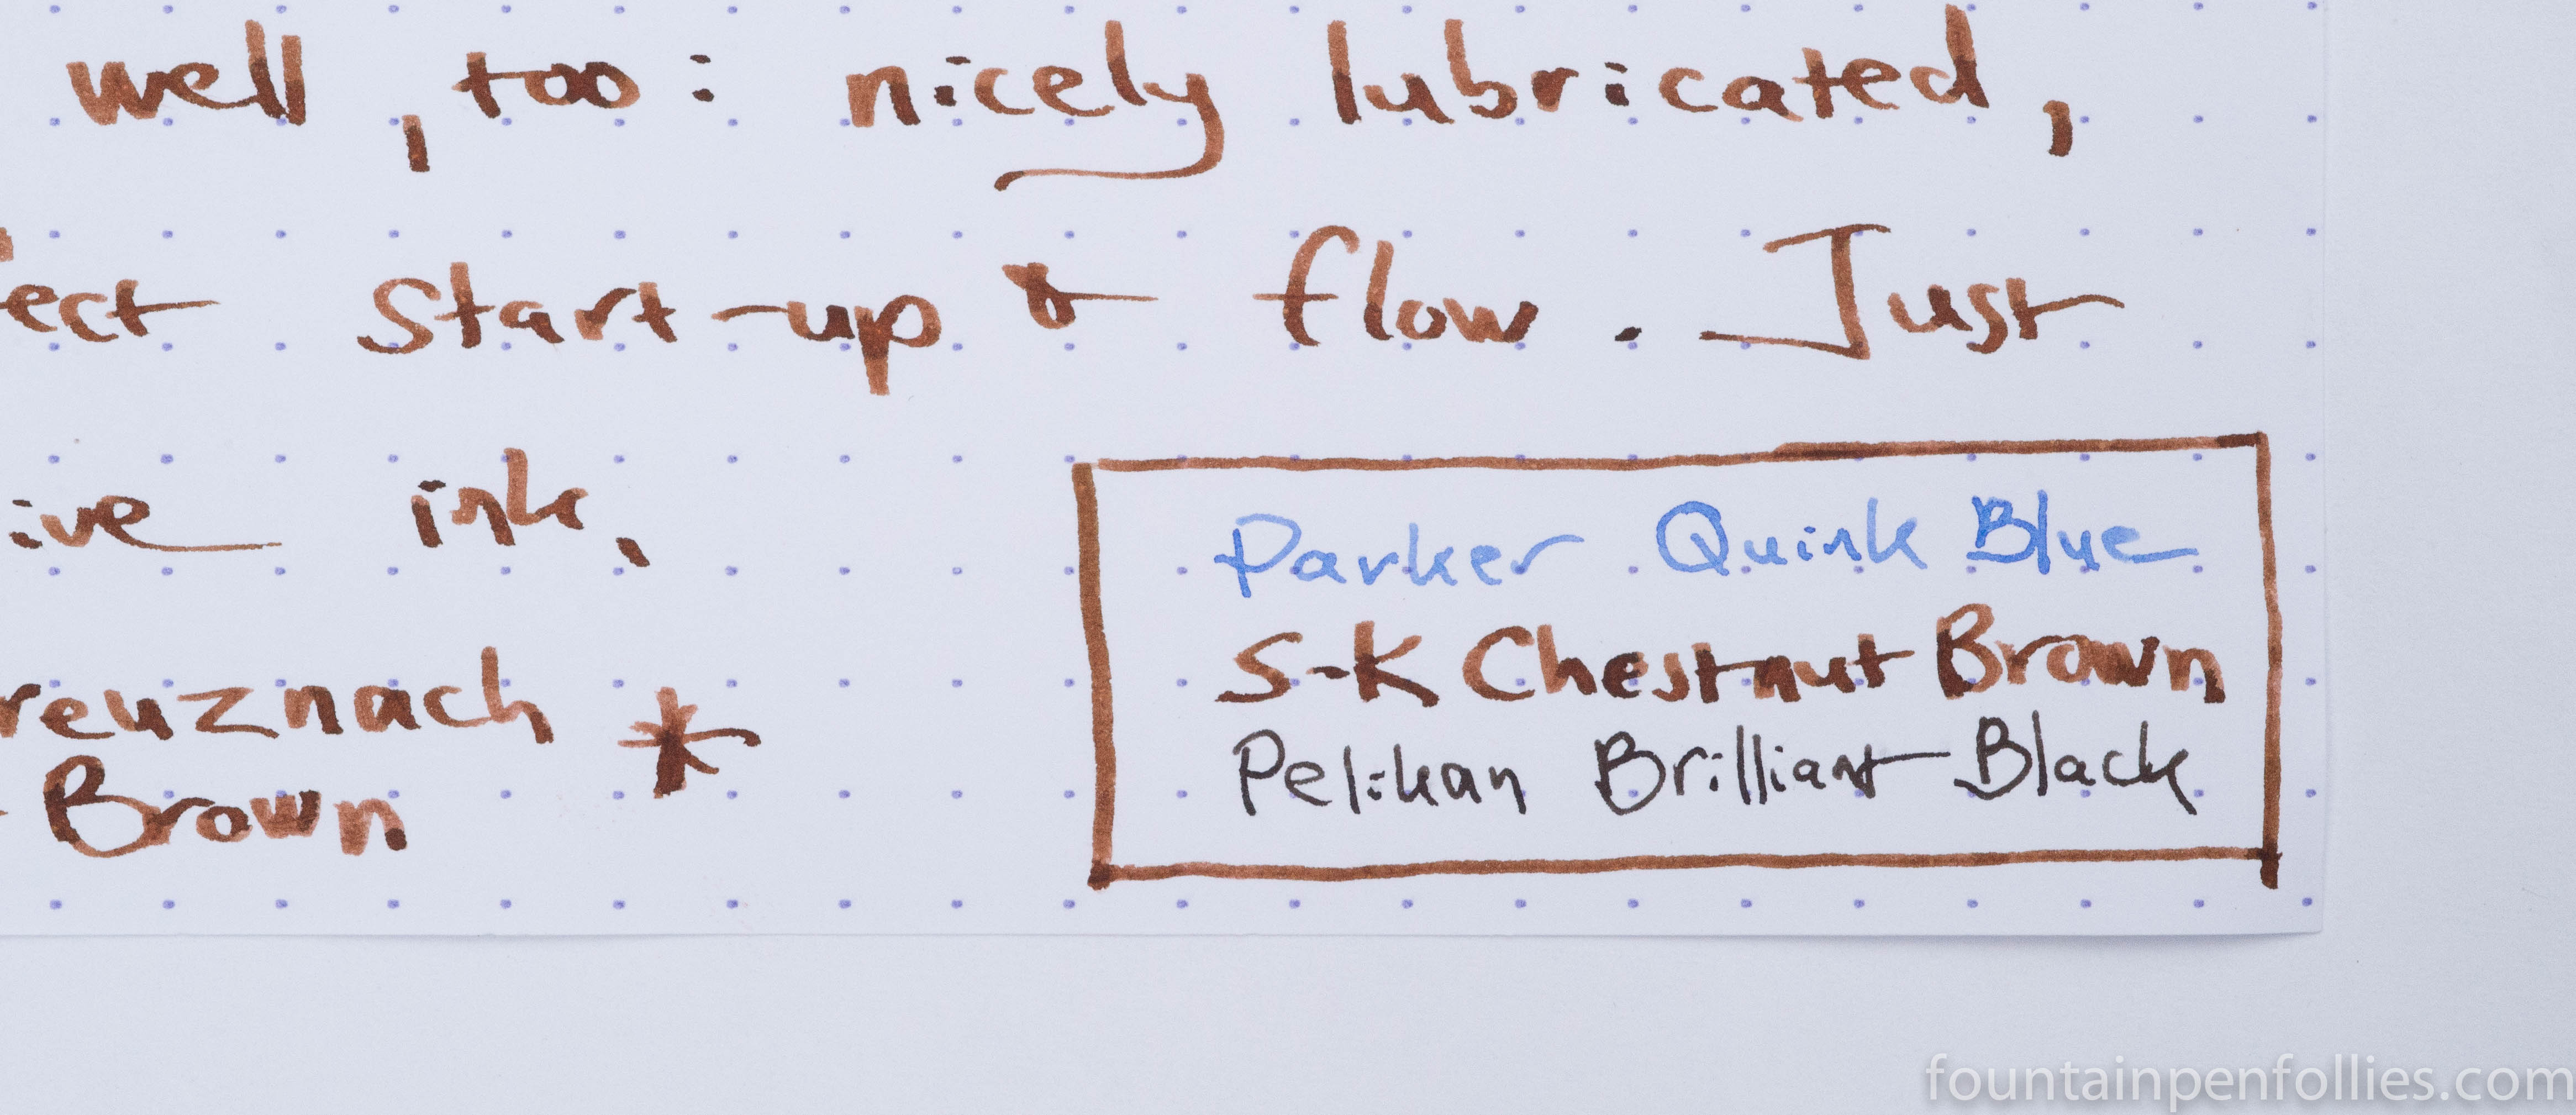 well, too: nicely lubricated,
ect start-up & flow. Just
ive ink.
reuznach *
Brown
Parker Quink Blue
S-K Chestnut Brown
Pelikan Brilliant Black
fountainpenfollies.com